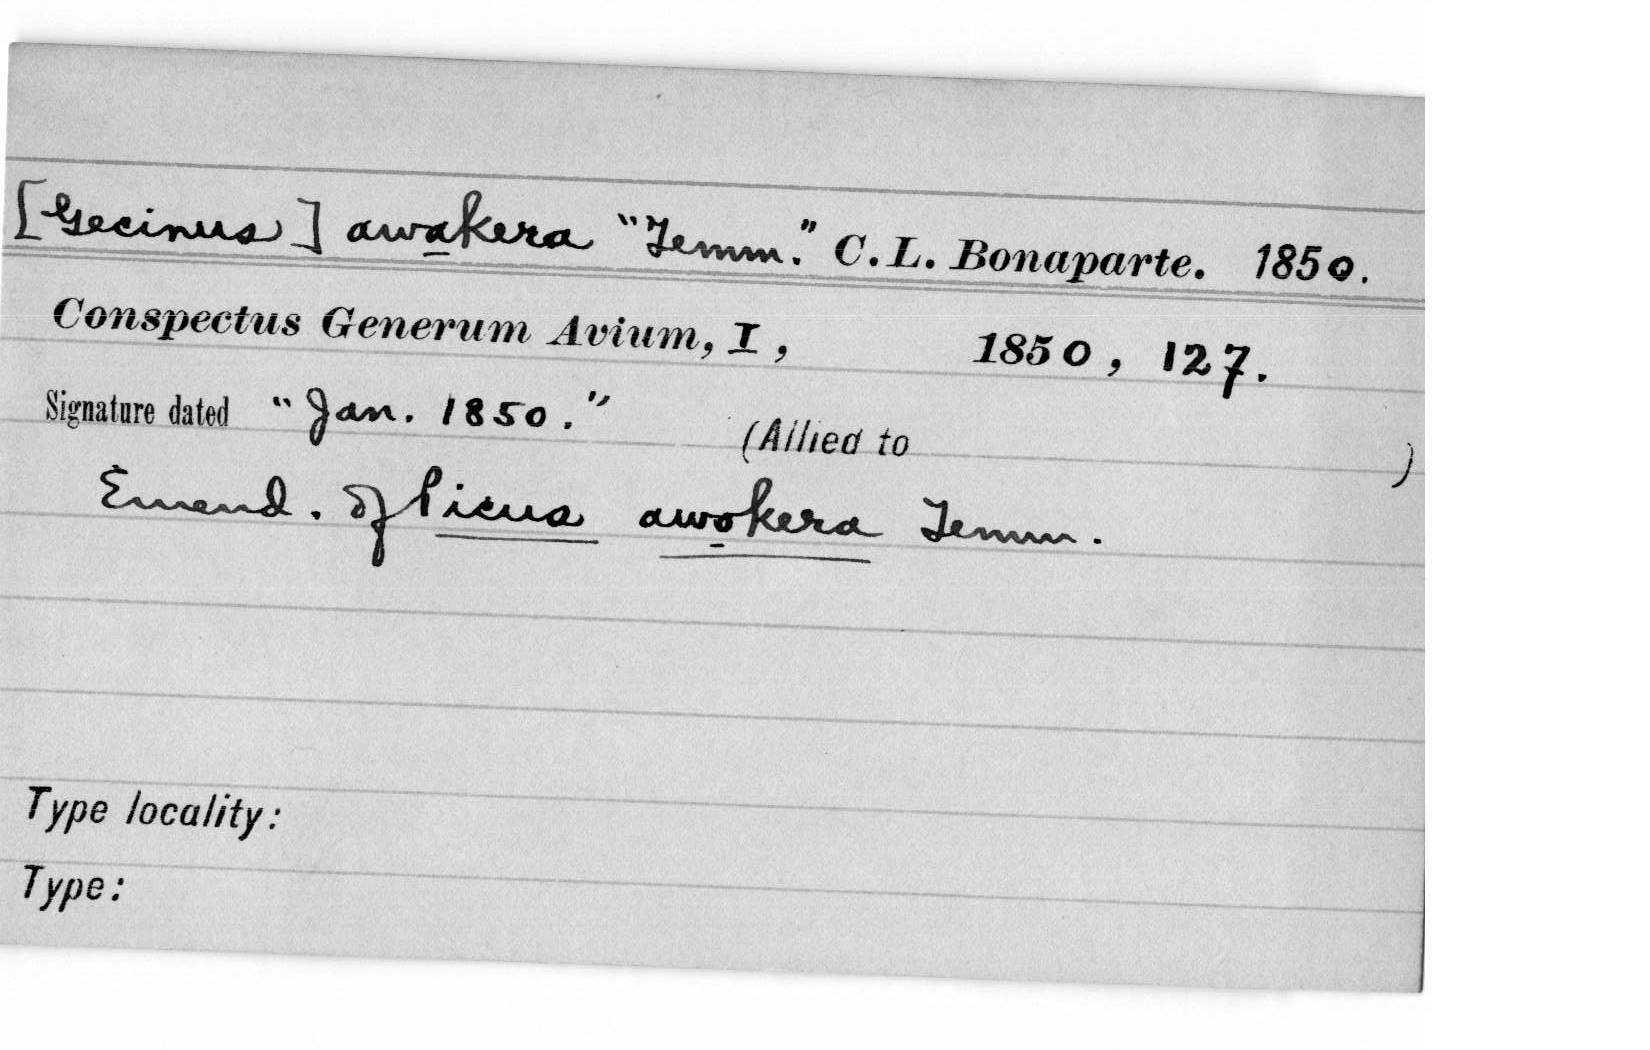 [Gecinus] awakera "Temm." C. L. Bonaparte. 1850.
Conspectus Generum Avium, I, 1850, 127.
Signature dated "Jan. 1850." (Allied to )
Emend. of Picus awokera Temm.
Type locality:
Type: